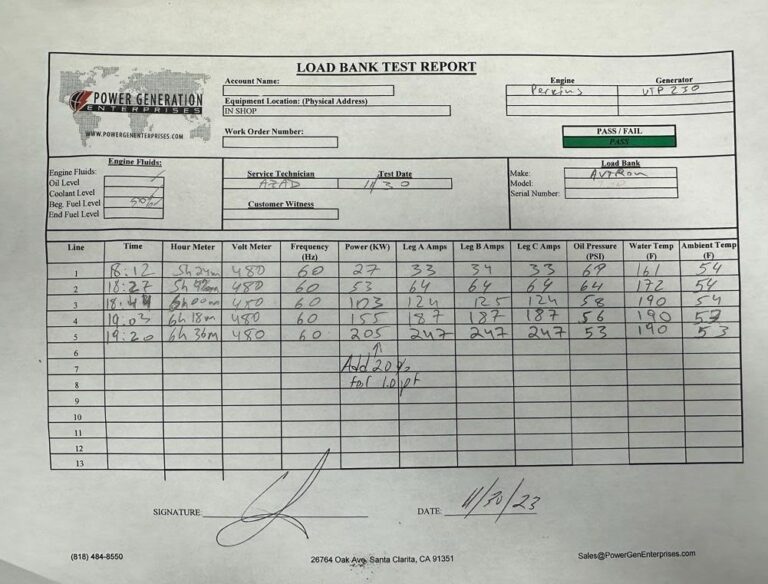 LOAD BANK TEST REPORT
POWER GENERATION
ENTERPRISES
WWW.POWERGENENTERPRISES.COM
Account Name:
Equipment Location: (Physical Address)
IN SHOP
Work Order Number:
Engine Generator
Perkins UTP 230
PASS / FAIL
PASS
Engine Fluids:
Engine Fluids:
Oil Level
Coolant Level
Beg. Fuel Level
End Fuel Level
Service Technician Test Date
AZAD 11/30
Customer Witness
Load Bank
Make: AVTRON
Model:
Serial Number:
Line Time Hour Meter Volt Meter Frequency (Hz) Power (KW) Leg A Amps Leg B Amps Leg C Amps Oil Pressure (PSI) Water Temp (F) Ambient Temp (F)
1 18:12 5h 24m 480 60 27 33 34 33 69 161 54
2 18:27 5h 42m 480 60 53 64 64 64 64 172 54
3 18:44 6h00m 480 60 103 124 125 124 58 190 54
4 19:03 6h 18m 480 60 155 187 187 187 56 190 53
5 19:20 6h 36m 480 60 205 247 247 247 53 190 53
6
7 Add 20%
8 for 1.0 pf
9
10
11
12
13
SIGNATURE: DATE: 11/30/23
(818) 484-8550
26764 Oak Ave, Santa Clarita, CA 91351
Sales@PowerGenEnterprises.com